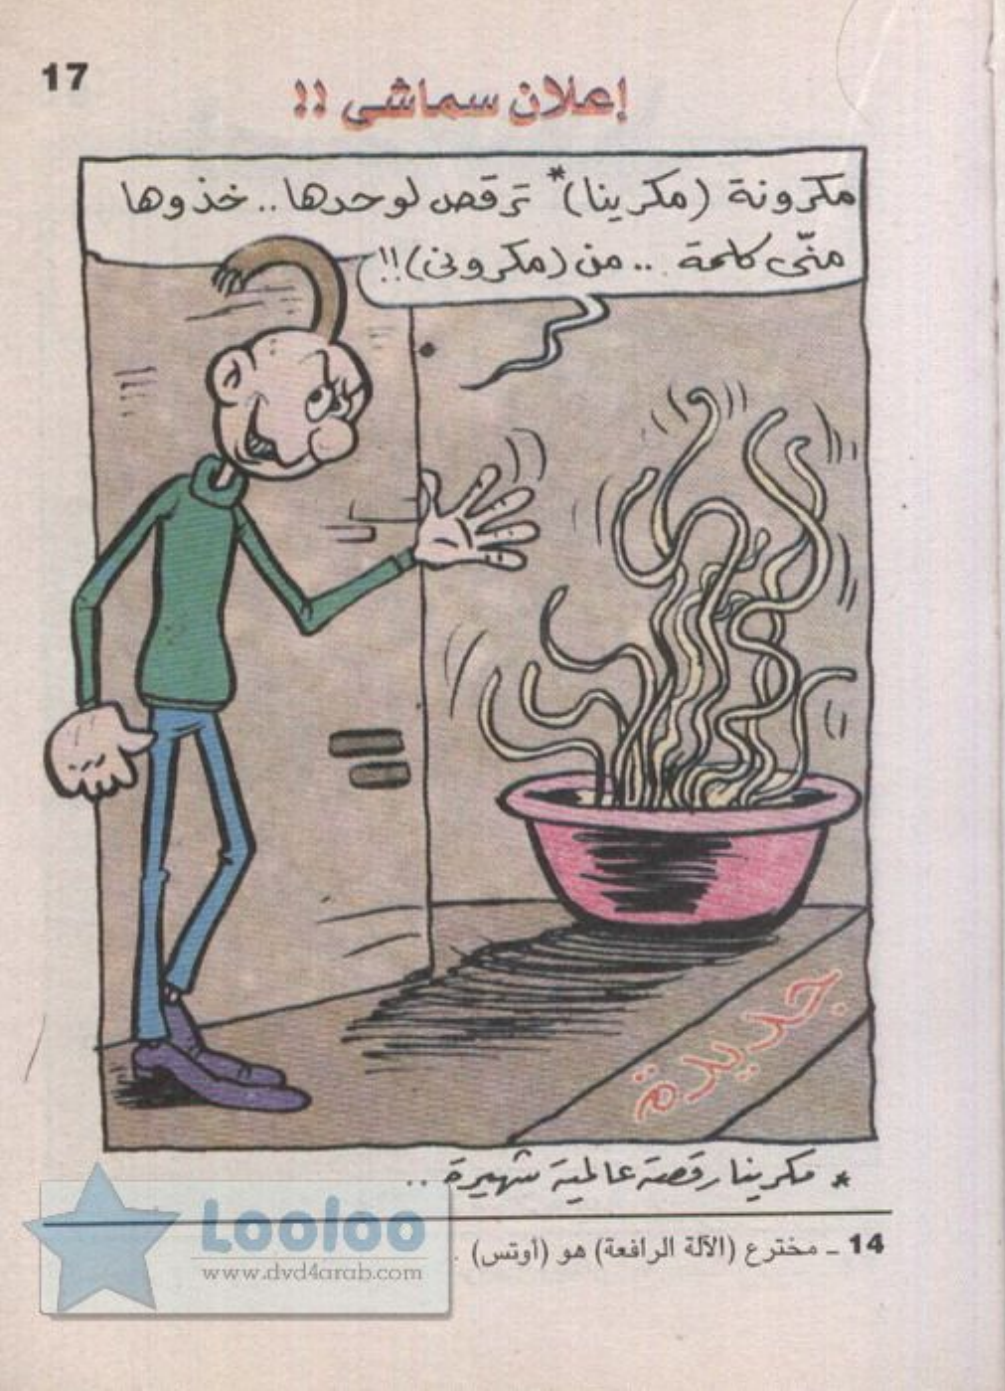 17
إعلان سماشى !!
مكرونة (مكرينا)* ترقص لوحدها.. خذوها
منّى كلمة .. من (مكرونى)!!
جديدة
* مكرينا رقصة عالمية شهيرة ..
14 ـ مخترع (الآلة الرافعة) هو (أوتس) .
Looloo
www.dvd4arab.com